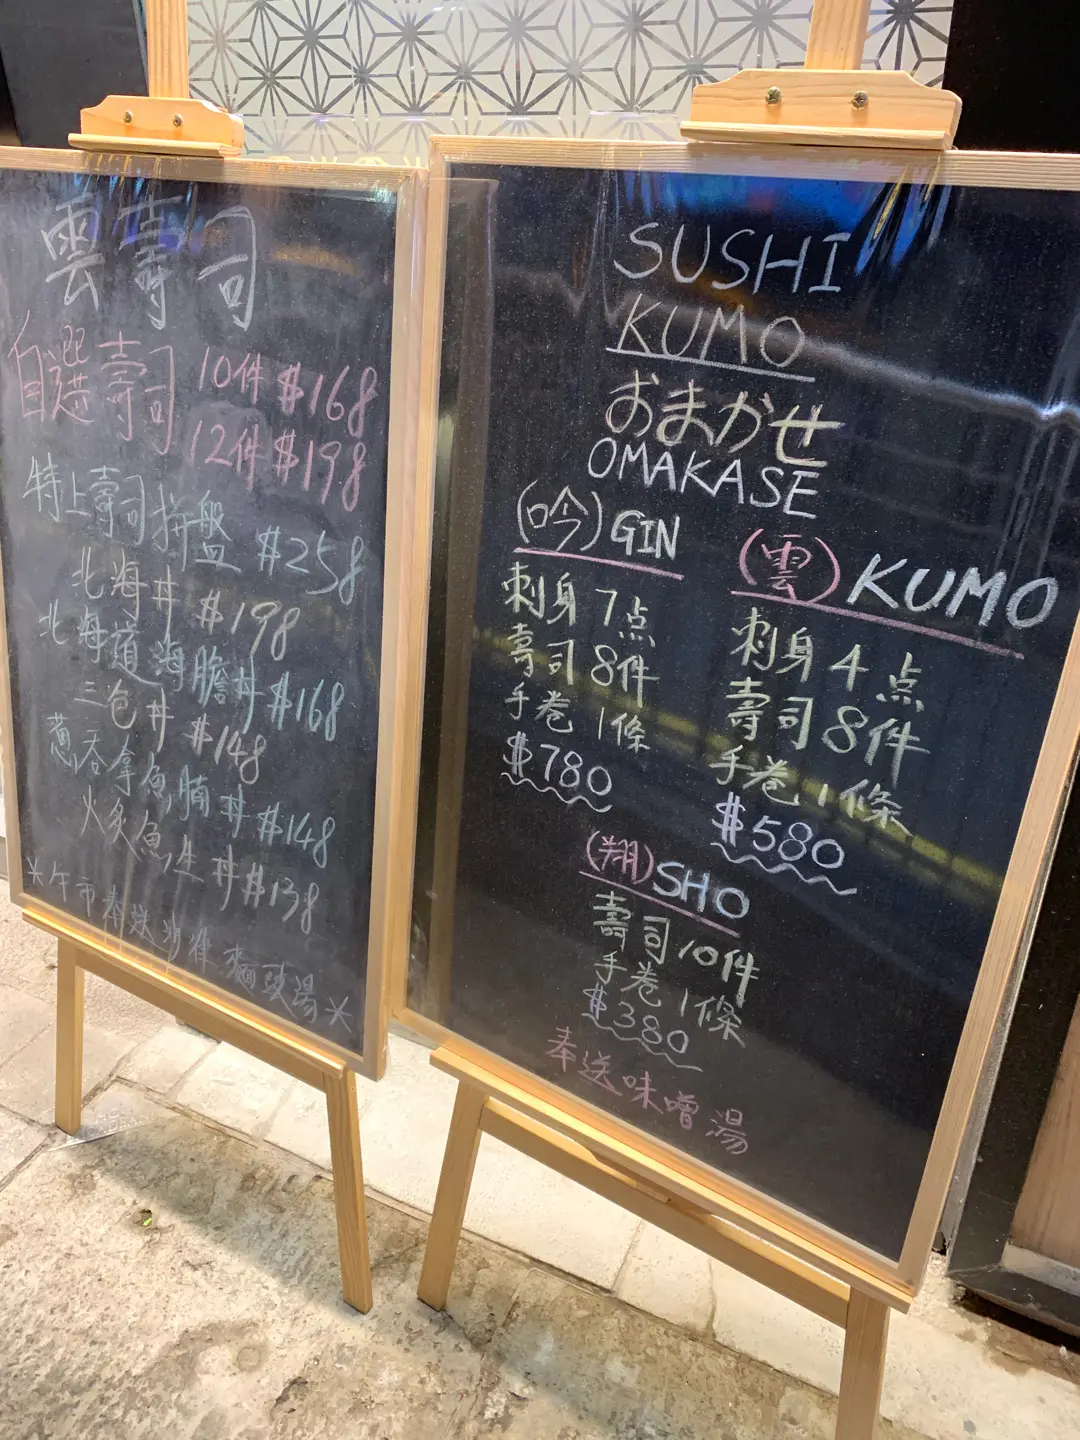 雲壽司
自選壽司 10件 $168
12件 $198
特上壽司拼盤 $258
北海丼 $198
北海道海膽丼 $168
三色丼 $148
蔥吞拿魚腩丼 $148
火炙魚生丼 $138
*午市奉送沙律 麵豉湯*
SUSHI
KUMO
おまかせ
OMAKASE
(吟) GIN
刺身 7点
壽司 8件
手卷 1條
$780
(雲) KUMO
刺身 4点
壽司 8件
手卷 1條
$580
(翔) SHO
壽司 10件
手卷 1條
$380
奉送味噌湯